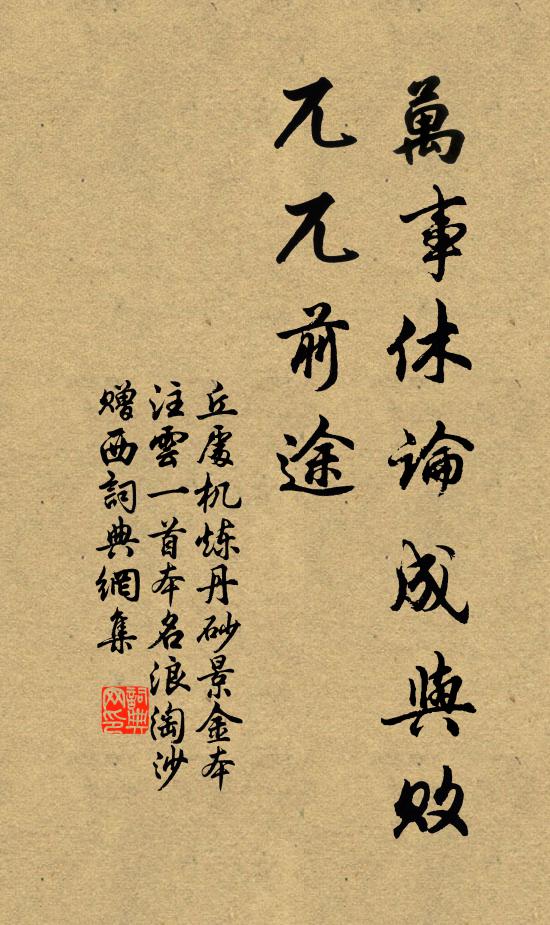 萬事休論成與敗
兀兀前途
丘處机炼丹砂景金本
注雲一首本名浪淘沙
贈西詞典網集
詞典網印